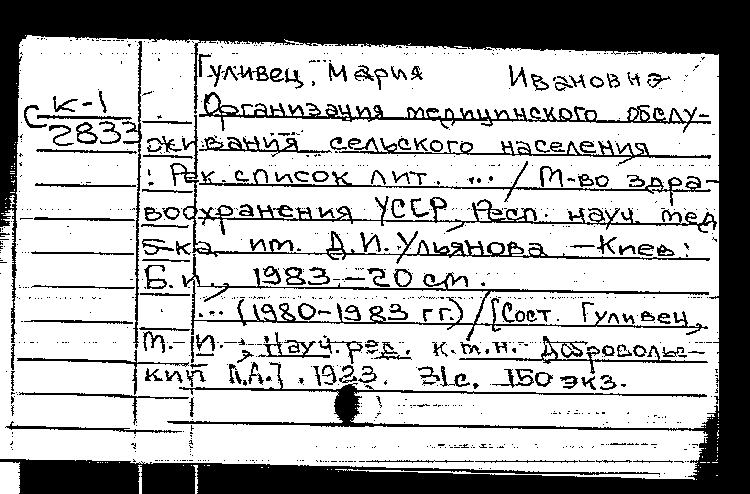 Гуливец, Мария Ивановна
С К-1
2833
Организация медицинского обслу-
живания сельского населения
: Рек. список лит. ... / М-во здра-
воохранения УССР, Респ. науч. мед
б-ка им. Д.И. Ульянова. – Киев:
Б.и., 1983. – 20 см.
... (1980-1983 гг.) / [Сост. Гуливец,
М. И.; Науч. ред. к.м.н. Доброволь-
кий Л.А.]. 1983. 31с. 150 экз.